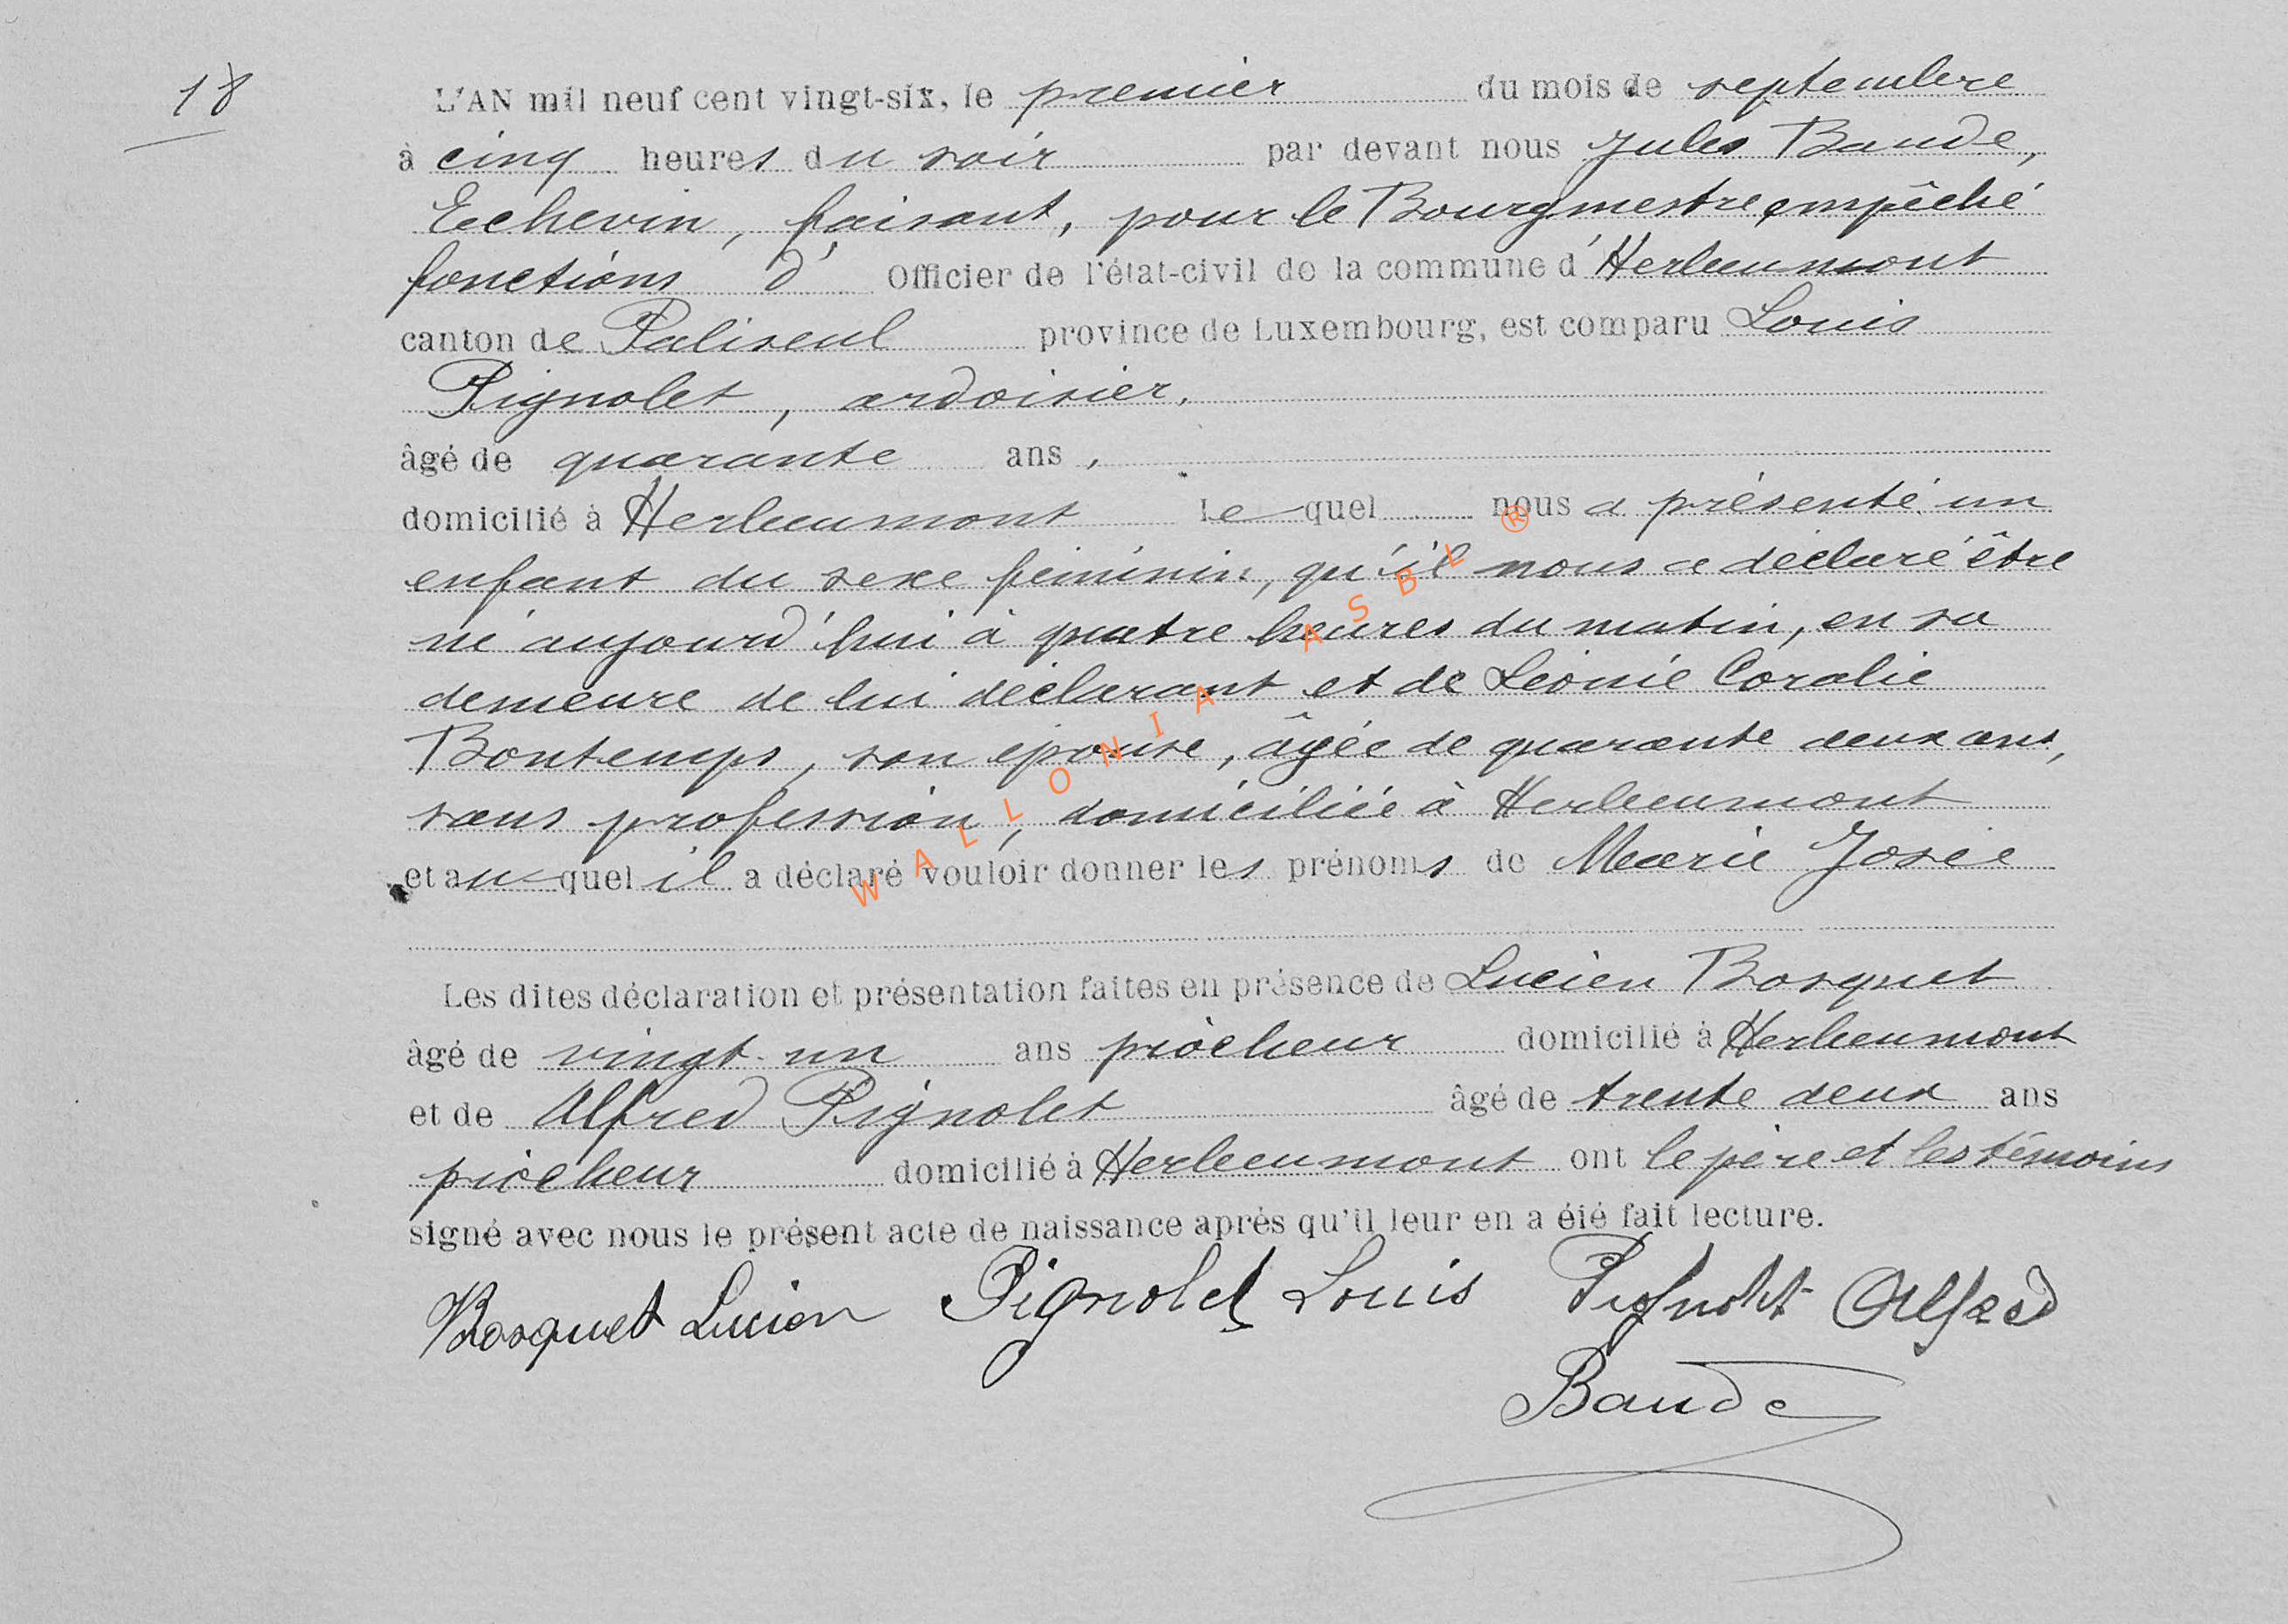 18
L'AN mil neuf cent vingt-six, le premier du mois de septembre
à cinq heures du soir par devant nous Jules Baude,
Echevin, faisant, pour le Bourgmestre empêché
fonctions d' Officier de l'état-civil de la commune d'Herbeumont
canton de Paliseul province de Luxembourg, est comparu Louis
Pignolet, ardoisier,
âgé de quarante ans,
domicilié à Herbeumont lequel nous a présenté un
enfant du sexe féminin, qu'il nous a déclaré être
né aujourd'hui à quatre heures du matin, en sa
demeure de lui déclarant et de Léonie Coralie
Bontemps, son épouse, âgée de quarante deux ans,
sans profession, domiciliée à Herbeumont
et auquel il a déclaré vouloir donner les prénoms de Marie Josée
Les dites déclaration et présentation faites en présence de Lucien Bosquet
âgé de vingt-un ans piocheur domicilié à Herbeumont
et de Alfred Pignolet âgé de trente deux ans
piocheur domicilié à Herbeumont ont le père et les témoins
signé avec nous le présent acte de naissance après qu'il leur en a été fait lecture.
Bosquet Lucien Pignolet Louis Pignolet Alfred
Baude
WALLONIA ASBL ®